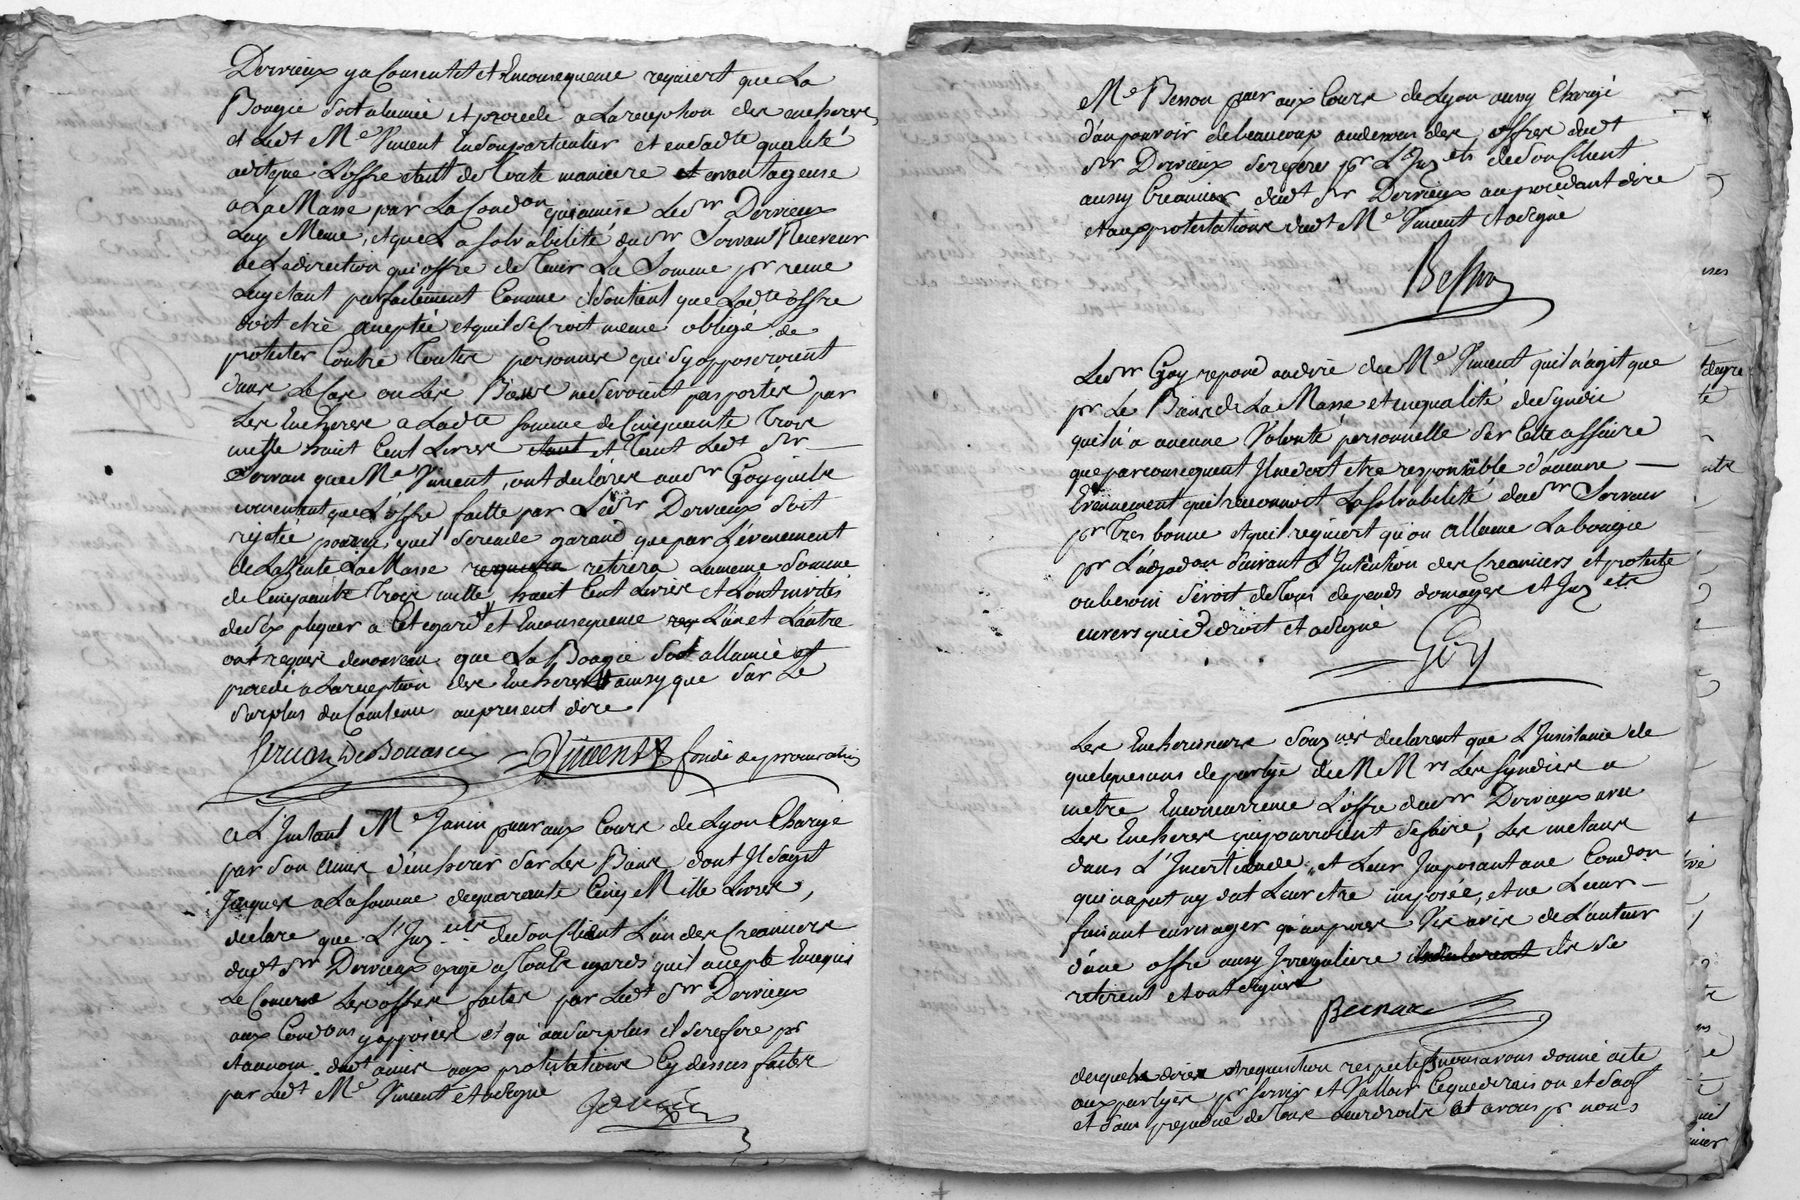 Dervieux ya Consentet et Enconsequence requiert que La
Bougie soit alumée et procedé a La reception des encheres,
et Ledt Me Vincent En son particulier et en sadte qualité
adit que L'offre etait de Toute maniere et avantageuse
a La Masse par La Condon qu'a mise Ledsr Dervieux
Luy Meme, et que La solvabilité du sr Servan Receveur
de La direction qui offre de Tenir La Somme pr
Luy etant parfaitement Connue il soutient que Ladte offre
doit etre aceptée et qu'il se Croit meme obligé de
protester Contre Toutes personnes qui s'y opposeroient
dans Le Cas ou Les Biens ne seroient pas portés par
Les Encheres a Ladte somme de Cinquante Trois
mille huit Cent Livres et Tant Ledt Sr
Servan que Me Vincent, ont declaré audsr Goy qu'ils
consentent que L'offre faitte par Ledsr Dervieux soit
rejetée pourvu quil se rende garand que par L'evenement
de La Vente La Masse retirera La meme Somme
de Cinquante Trois mille huit Cent Livres et L'ont invités
de s'expliquer a Cet egard et Enconsequence L'un et L'autre
ont requis denouveau que La Bougie soit allumée et
procedé a La reception des Encheres ainsy que sur Le
surplus du Contenu au present dire
Servan De Bouasce Vincent fondé de procuration
a L'Instant Me Janin pcur aux Cours de Lyon Chargé
par son amis d'encherir sur Les Biens dont Il s'agit
Jusques a La somme de quarante Cinq Mille Livres,
declare que L'Inz ets de son Client L'un des Creanciers
dudt Sr Dervieux exige a Touts egards qu'il accepte Encequi
Le Concerne Les offres faites par Ledt Sr Dervieux
aux Condons y apposées et qu'au surplus il se refere pr
et au nom dudt amis aux protestations Cy dessus faites
par Ledt Me Vincent et a signé
Janin
Me Besson pcur aux Cours de Lyon aussy Chargé
d'un pouvoir de beaucoup audessous des offres dudt
Sr Dervieux se refere pr L'Inz ets de son Client
aussy Creancier dudt Sr Dervieux au precedant dire
et aux protestations dudt Me Vincent et a signé
Besson
Ledsr Goy repond au dire du Me Vincent qu'il n'agit que
pr Le Bien de La Masse et en qualité de Syndic
qu'il n'a aucune Volonté personnelle sur Cette affaire
que par consequent Il ne doit etre responsable d'aucune
Evenement qu'il reconnoit La solvabilité dudsr Servan
pr Tres bonne et qu'il requiert qu'on allume La bougie
pr L'adjadon suivant L'Intention des Creanciers et proteste
au besoin seroit de Tous depends domages et Inz ets
envers qui De droit et a signé
Goy
Les Encherisseurs souz nés declarent que L'Insistance de
quelques uns de partye de MMrs Les syndics a
metre Enconcurrence L'offre dudsr Dervieux avec
Les Encheres qui pourroient se faire, Les metans
dans L'Incertitude, et Leur Imposant une Condon
qui n'a put ny dut Leur etre imposée, et ne Leur
faisant envisager qu'un proces Vis avis de L'auteur
d'une offre aussy Irreguliere ils se
retirent et ont signé
Bernard
desquels dires et requisition respectifs nous avons donné acte
aux partyes pr servir et Valloir Ceque de raison et sauf
et sans prejudice de Tous Leurs droits et avons pr nous